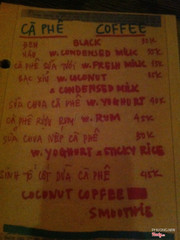 CÀ PHÊ COFFEE
ĐEN BLACK
NÂU W. CONDENSED MILK
CÀ PHÊ SỮA TƯƠI W. FRESH MILK
BẠC XỈU W. COCONUT
& CONDENSED MILK
SỮA CHUA CÀ PHÊ W. YOGHURT
CÀ PHÊ RƯỢU RUM W. RUM 45K
SỮA CHUA NẾP CÀ PHÊ
W. YOGHURT & STICKY RICE
CÀ PHÊ
COCONUT COFFEE
SMOOTHIE